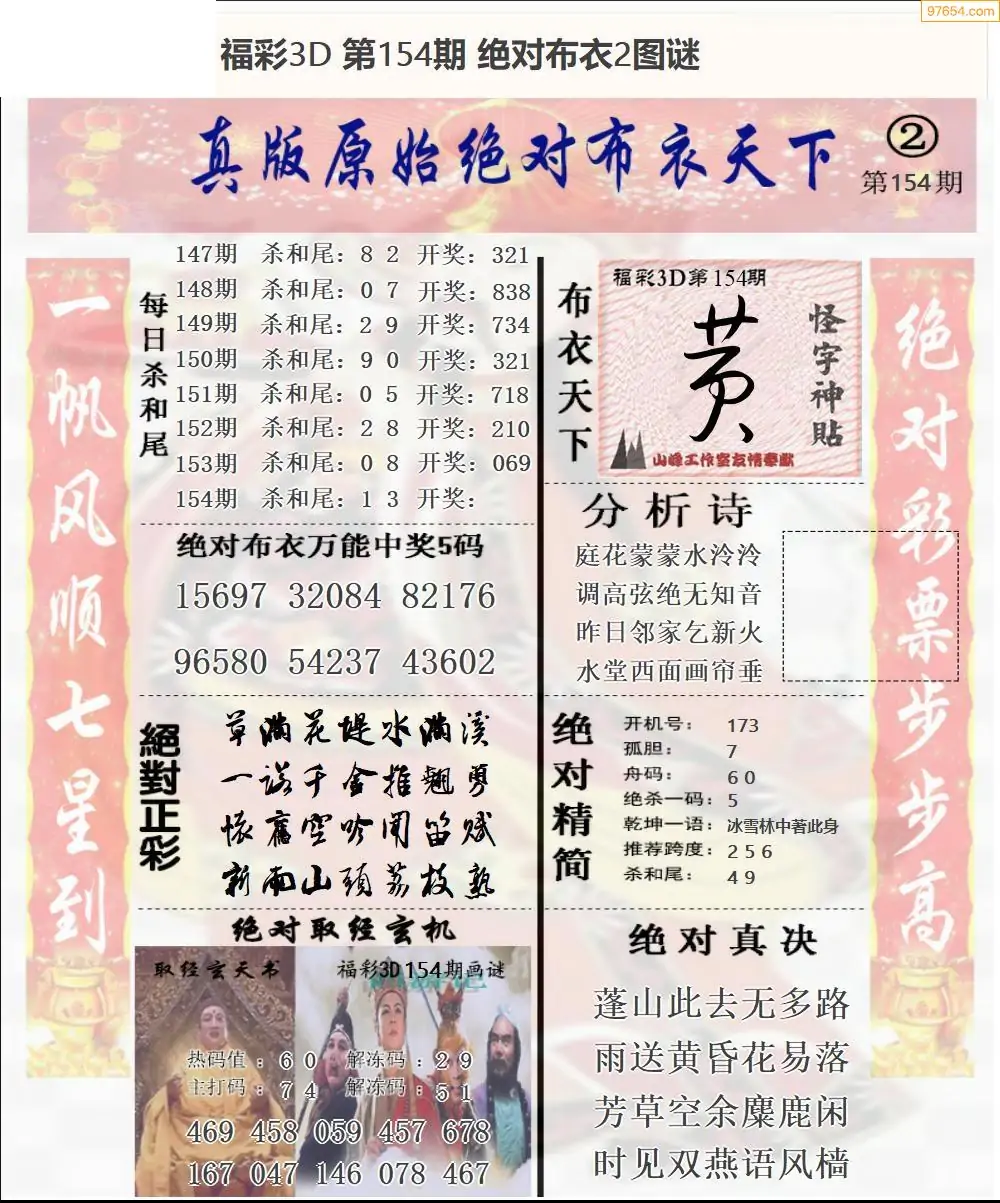 97654.com
福彩3D 第154期 绝对布衣2图谜
真版原始绝对布衣天下
②
第154期
一帆风顺七星到
每日杀和尾
147期 杀和尾: 8 2 开奖: 321
148期 杀和尾: 0 7 开奖: 838
149期 杀和尾: 2 9 开奖: 734
150期 杀和尾: 9 0 开奖: 321
151期 杀和尾: 0 5 开奖: 718
152期 杀和尾: 2 8 开奖: 210
153期 杀和尾: 0 8 开奖: 069
154期 杀和尾: 1 3 开奖:
绝对布衣万能中奖5码
15697 32084 82176
96580 54237 43602
絕對正彩
草满花堤水满溪
一诺千金推翘勇
怀旧空吟闻笛赋
新雨山头荔枝熟
绝对取经玄机
取经玄天书
福彩3D154期画谜
热码值:60 解冻码:29
主打码:74 解冻码:51
469 458 059 457 678
167 047 146 078 467
布衣天下
福彩3D第154期
黄
怪字神貼
山峰工作室友情奉献
分析诗
庭花蒙蒙水泠泠
调高弦绝无知音
昨日邻家乞新火
水堂西面画帘垂
绝对精简
开机号: 173
孤胆: 7
舟码: 6 0
绝杀一码: 5
乾坤一语: 冰雪林中著此身
推荐跨度: 2 5 6
杀和尾: 4 9
绝对真决
蓬山此去无多路
雨送黄昏花易落
芳草空余麋鹿闲
时见双燕语风樯
绝对彩票步步高